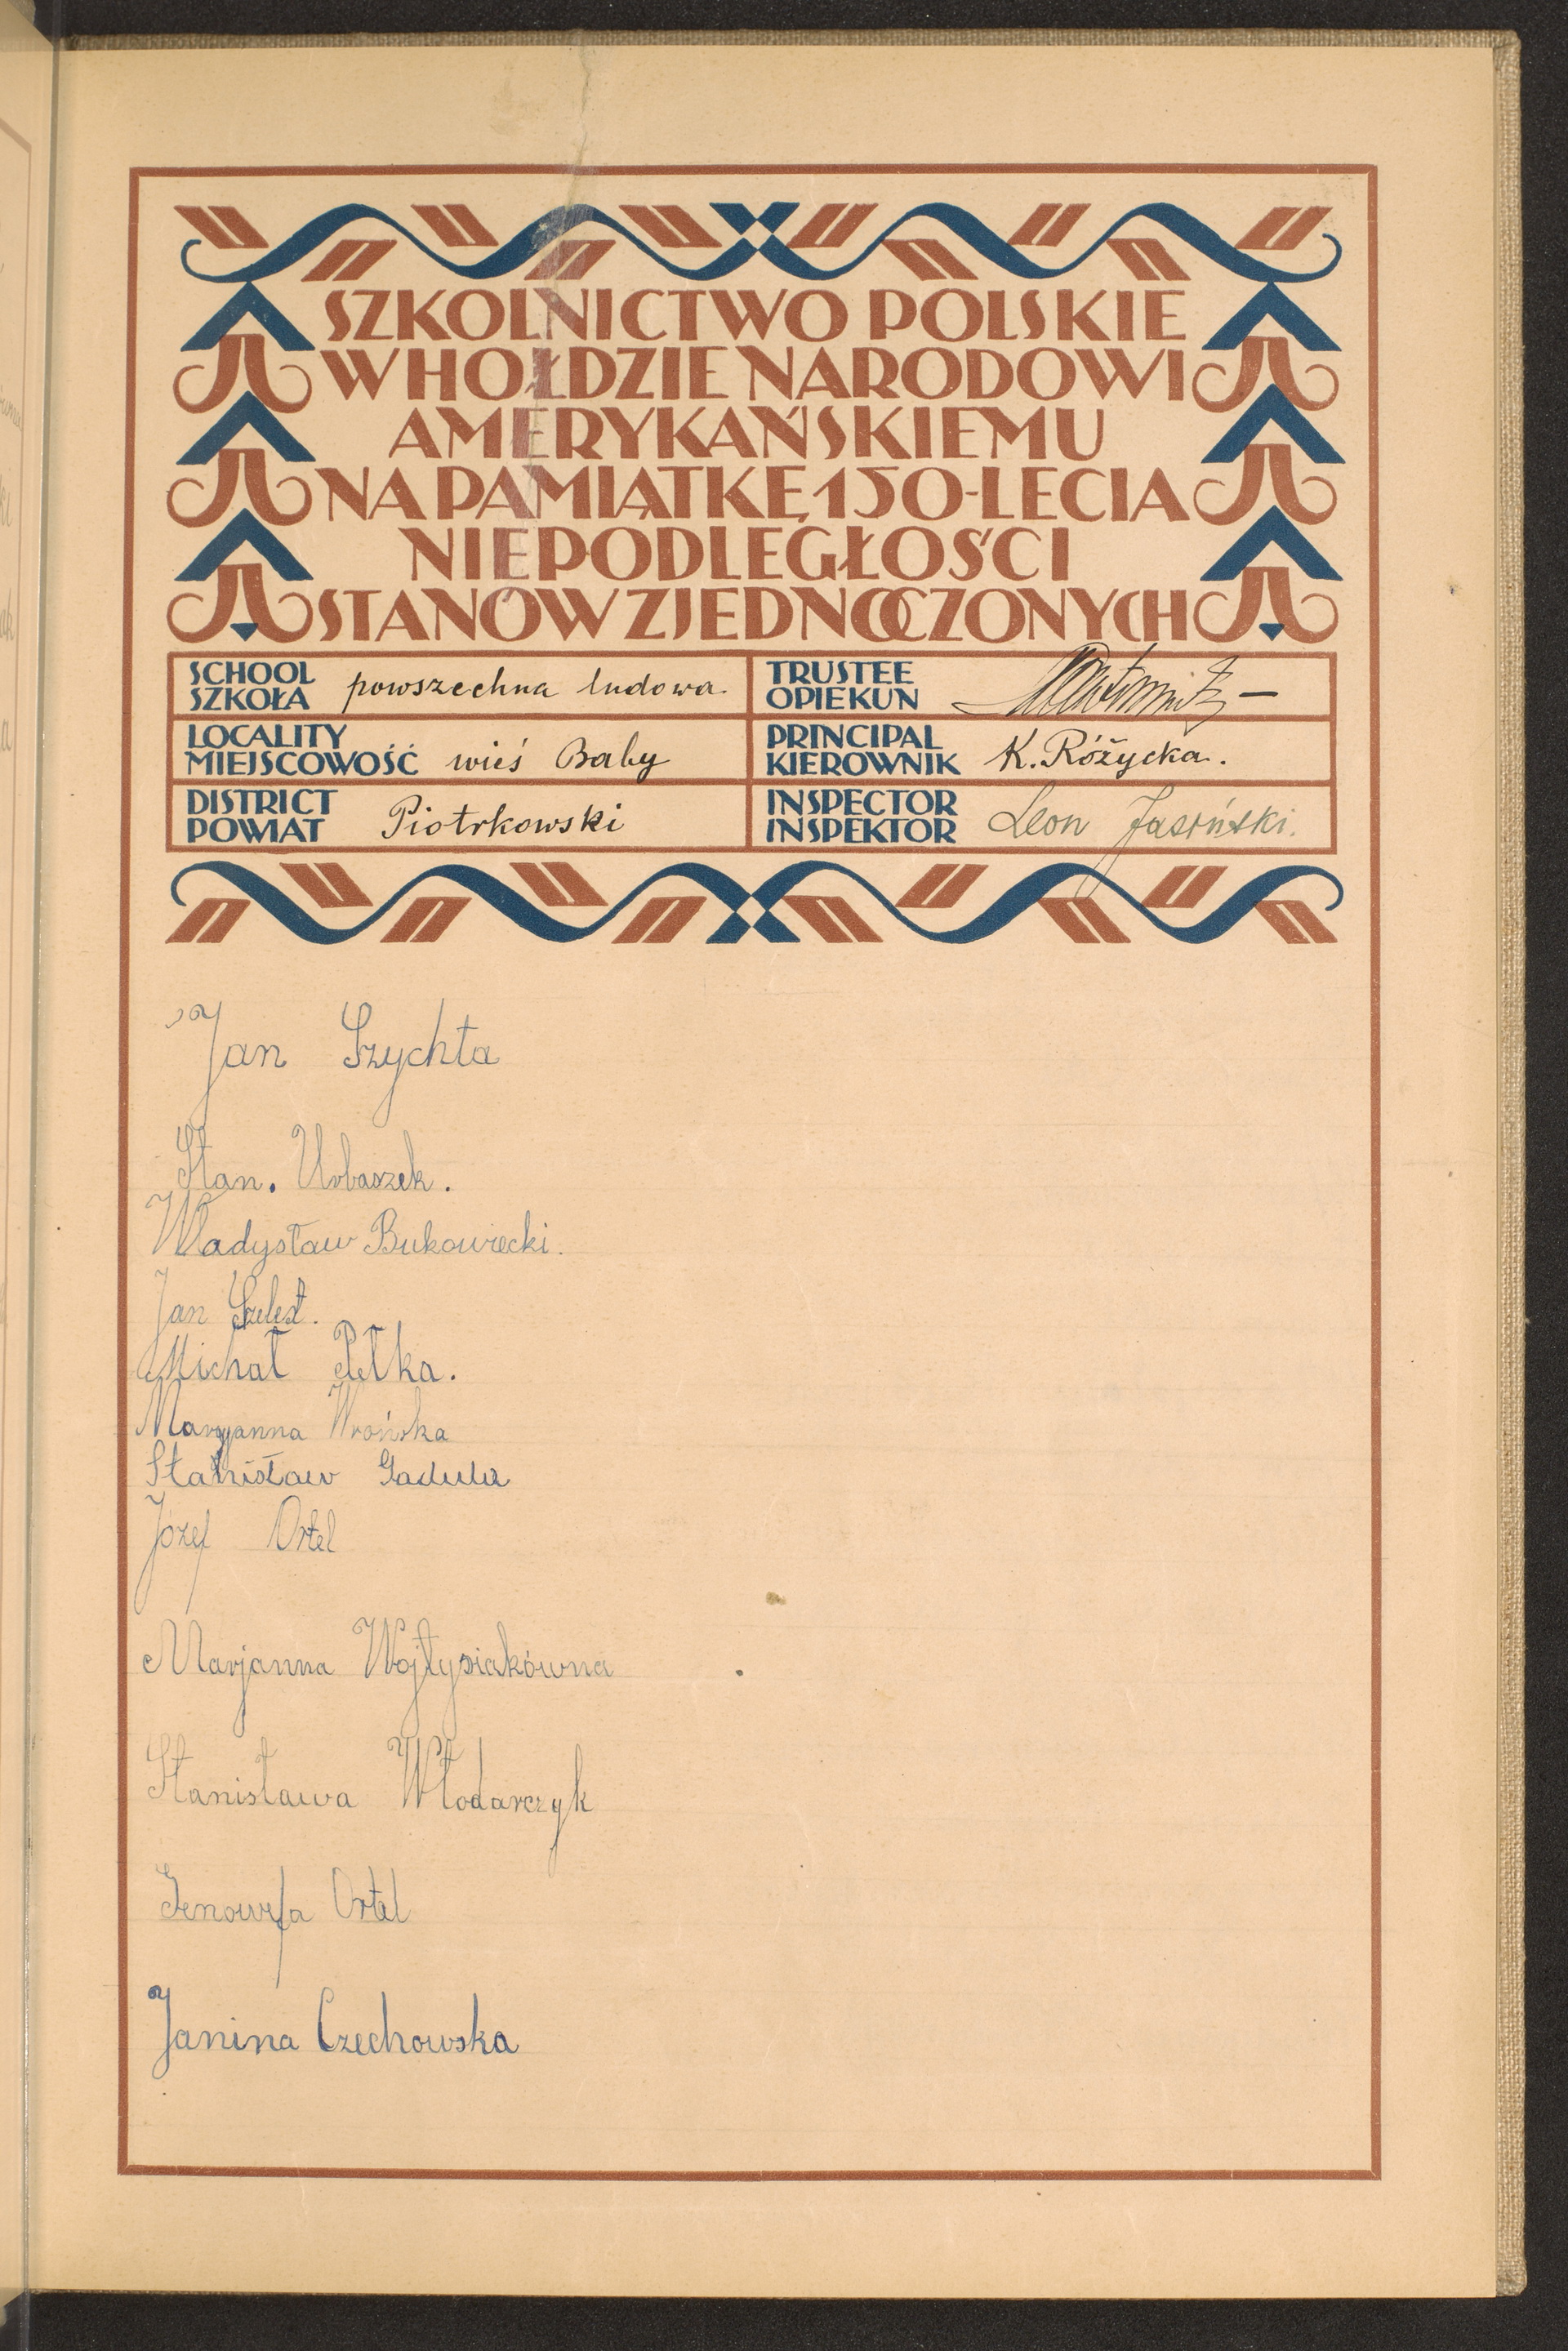 SZKOLNICTWO POLSKIE
W HOŁDZIE NARODOWI
AMERYKAŃSKIEMU
NA PAMIĄTKĘ 150-LECIA
NIEPODLEGŁOŚCI
STANÓW ZJEDNOCZONYCH
SCHOOL
SZKOŁA powszechna ludowa.
TRUSTEE
OPIEKUN
LOCALITY
MIEJSCOWOŚĆ wieś Baby
PRINCIPAL
KIEROWNIK K. Różycka.
DISTRICT
POWIAT Piotrkowski
INSPECTOR
INSPEKTOR Leon Jasiński.
Jan Szychta
Stan. Urbaszek.
Władysław Bukowiecki.
Jan Szelest.
Michał Pełka.
Maryjanna Wrońska
Stanisław Gadula
Józef Ortel
Marjanna Wojtysiakówna
Stanisława Włodarczyk
Genowefa Ortel
Janina Czechowska